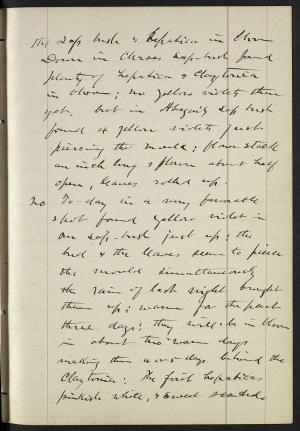 the sap bush & Hepatica in bloom
Down in Chases sap-bush found
plenty of hepatica & Claytonia
in bloom; no yellow violets there
yet, but in Abigails sap bush
found 4 yellow violets just
piercing the mould; flower stalk
an inch long & flower about half
open, leaves rolled up.
20 To-day in a very favorable
spot found yellow violet in
our sap-bush just up; the
bud & the leaves seem to pierce
the mould simultaneously
the rain of last night brought
them up; warm for the past
three days; they will be in bloom
in about two warm days
making them 4 or 5 days behind the
Claytonia. The first hepaticas
pinkish white, & sweet scented.